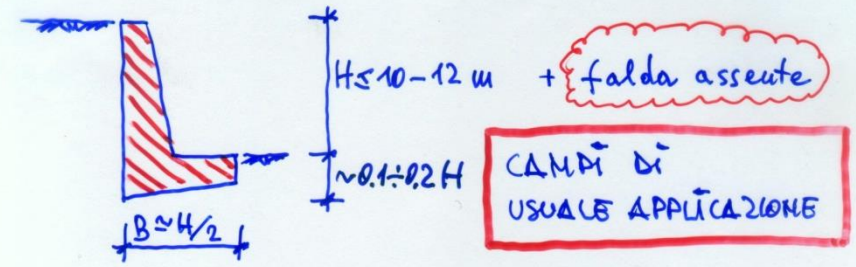 H ≤ 10 - 12 m + falda assente
~0.1÷0.2 H
B ≃ H/2
CAMPI DI
USUALE APPLICAZIONE